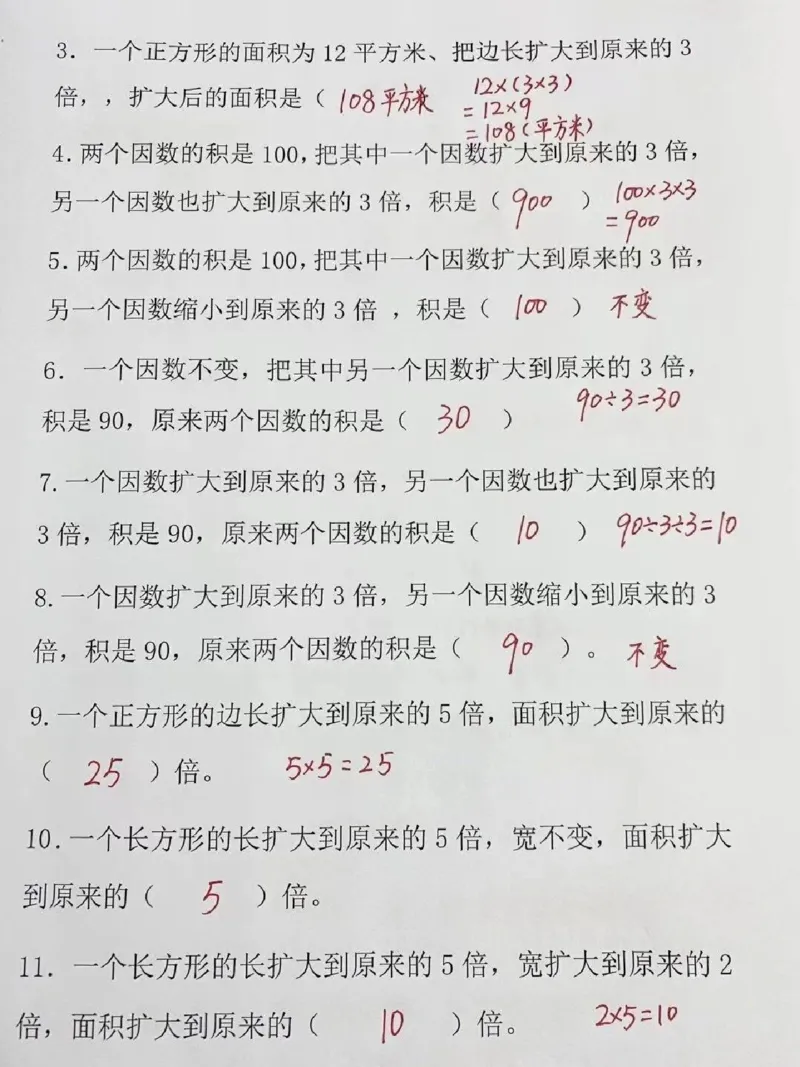 3. 一个正方形的面积为12平方米、把边长扩大到原来的3
倍，，扩大后的面积是（ 108平方米
12×(3×3)
=12×9
=108(平方米)
4.两个因数的积是100,把其中一个因数扩大到原来的3倍，
另一个因数也扩大到原来的3倍，积是（ 900 ） 100×3×3
=900
5.两个因数的积是100,把其中一个因数扩大到原来的3倍，
另一个因数缩小到原来的3倍 ，积是（ 100 ） 不变
6. 一个因数不变，把其中另一个因数扩大到原来的3倍，
积是90，原来两个因数的积是（ 30 ） 90÷3=30
7.一个因数扩大到原来的3倍，另一个因数也扩大到原来的
3倍，积是90，原来两个因数的积是（ 10 ） 90÷3÷3=10
8.一个因数扩大到原来的3倍，另一个因数缩小到原来的3
倍，积是90，原来两个因数的积是（ 90 ）。 不变
9.一个正方形的边长扩大到原来的5倍，面积扩大到原来的
（ 25 ）倍。 5×5=25
10.一个长方形的长扩大到原来的5倍，宽不变，面积扩大
到原来的（ 5 ）倍。
11. 一个长方形的长扩大到原来的5倍，宽扩大到原来的2
倍，面积扩大到原来的（ 10 ）倍。 2×5=10